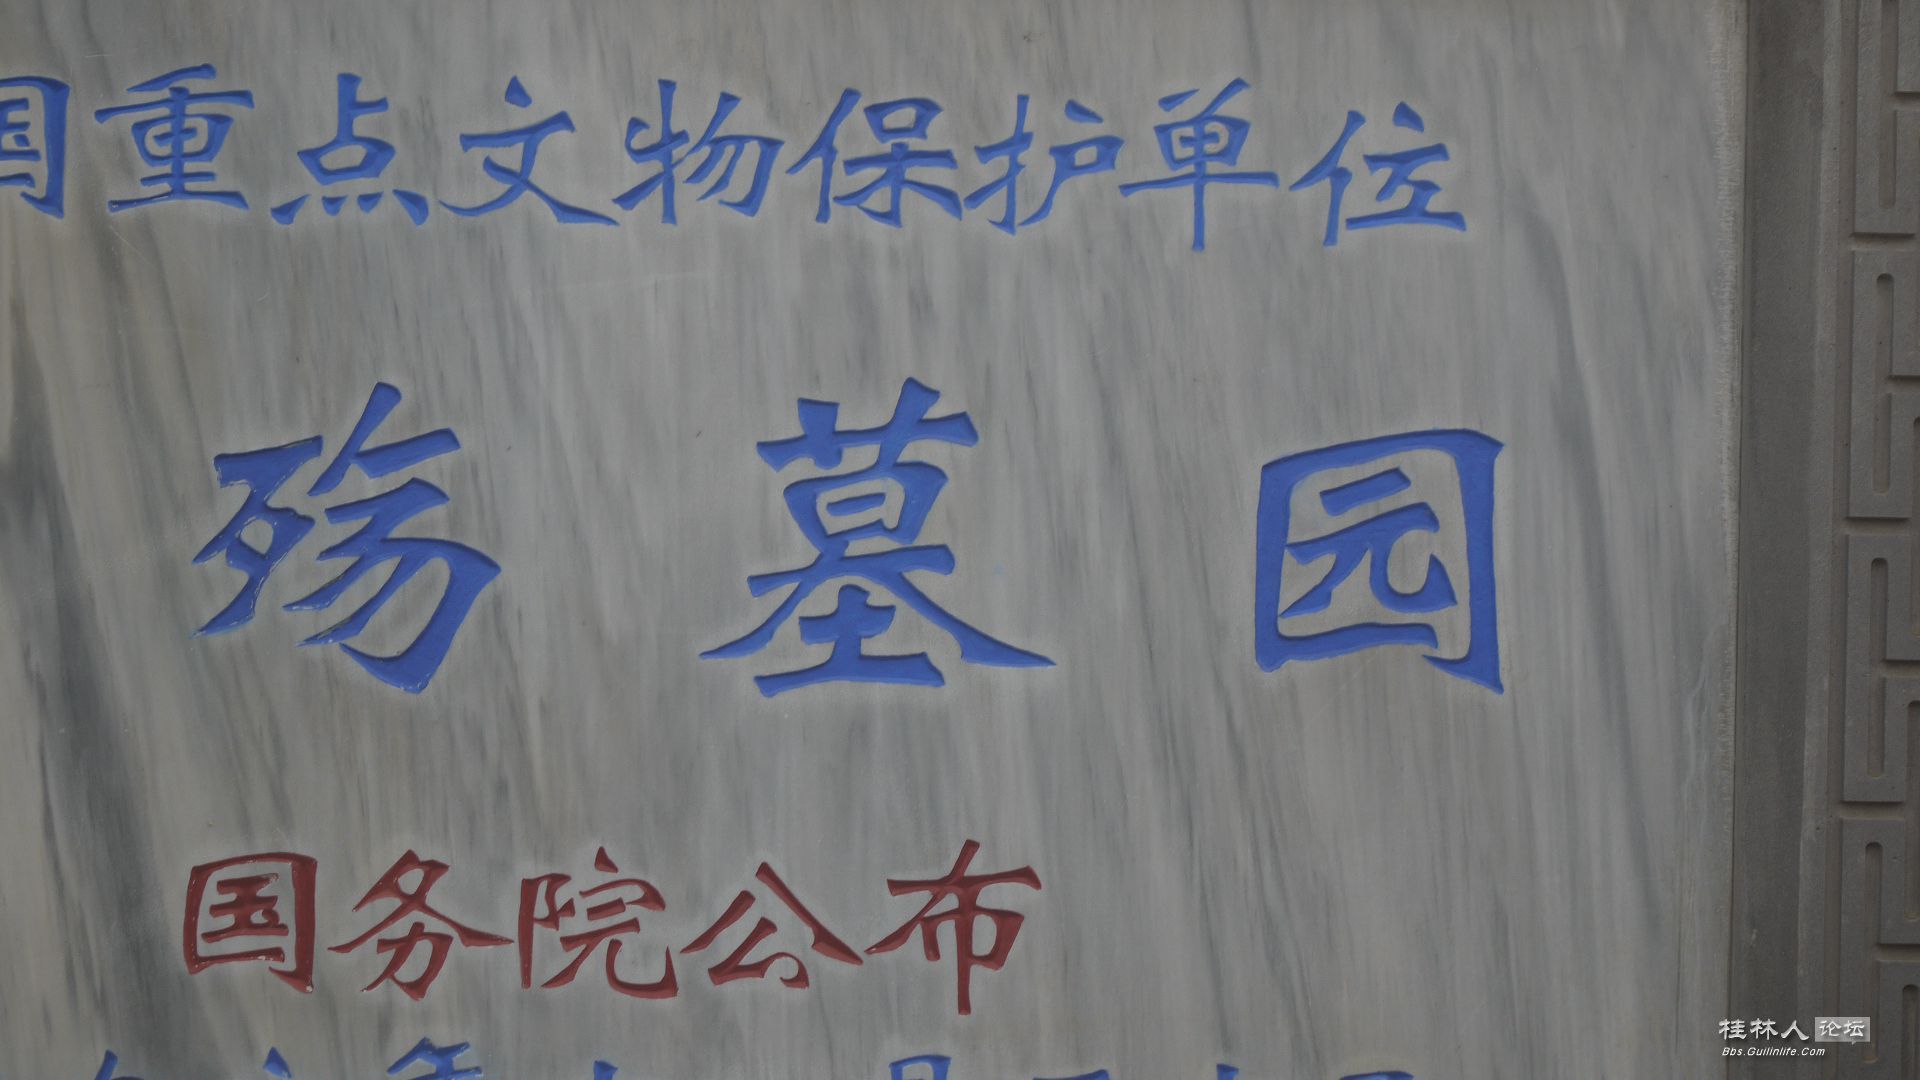 国重点文物保护单位
殇墓园
国务院公布
桂林人论坛
Bbs.Guilinlife.Com